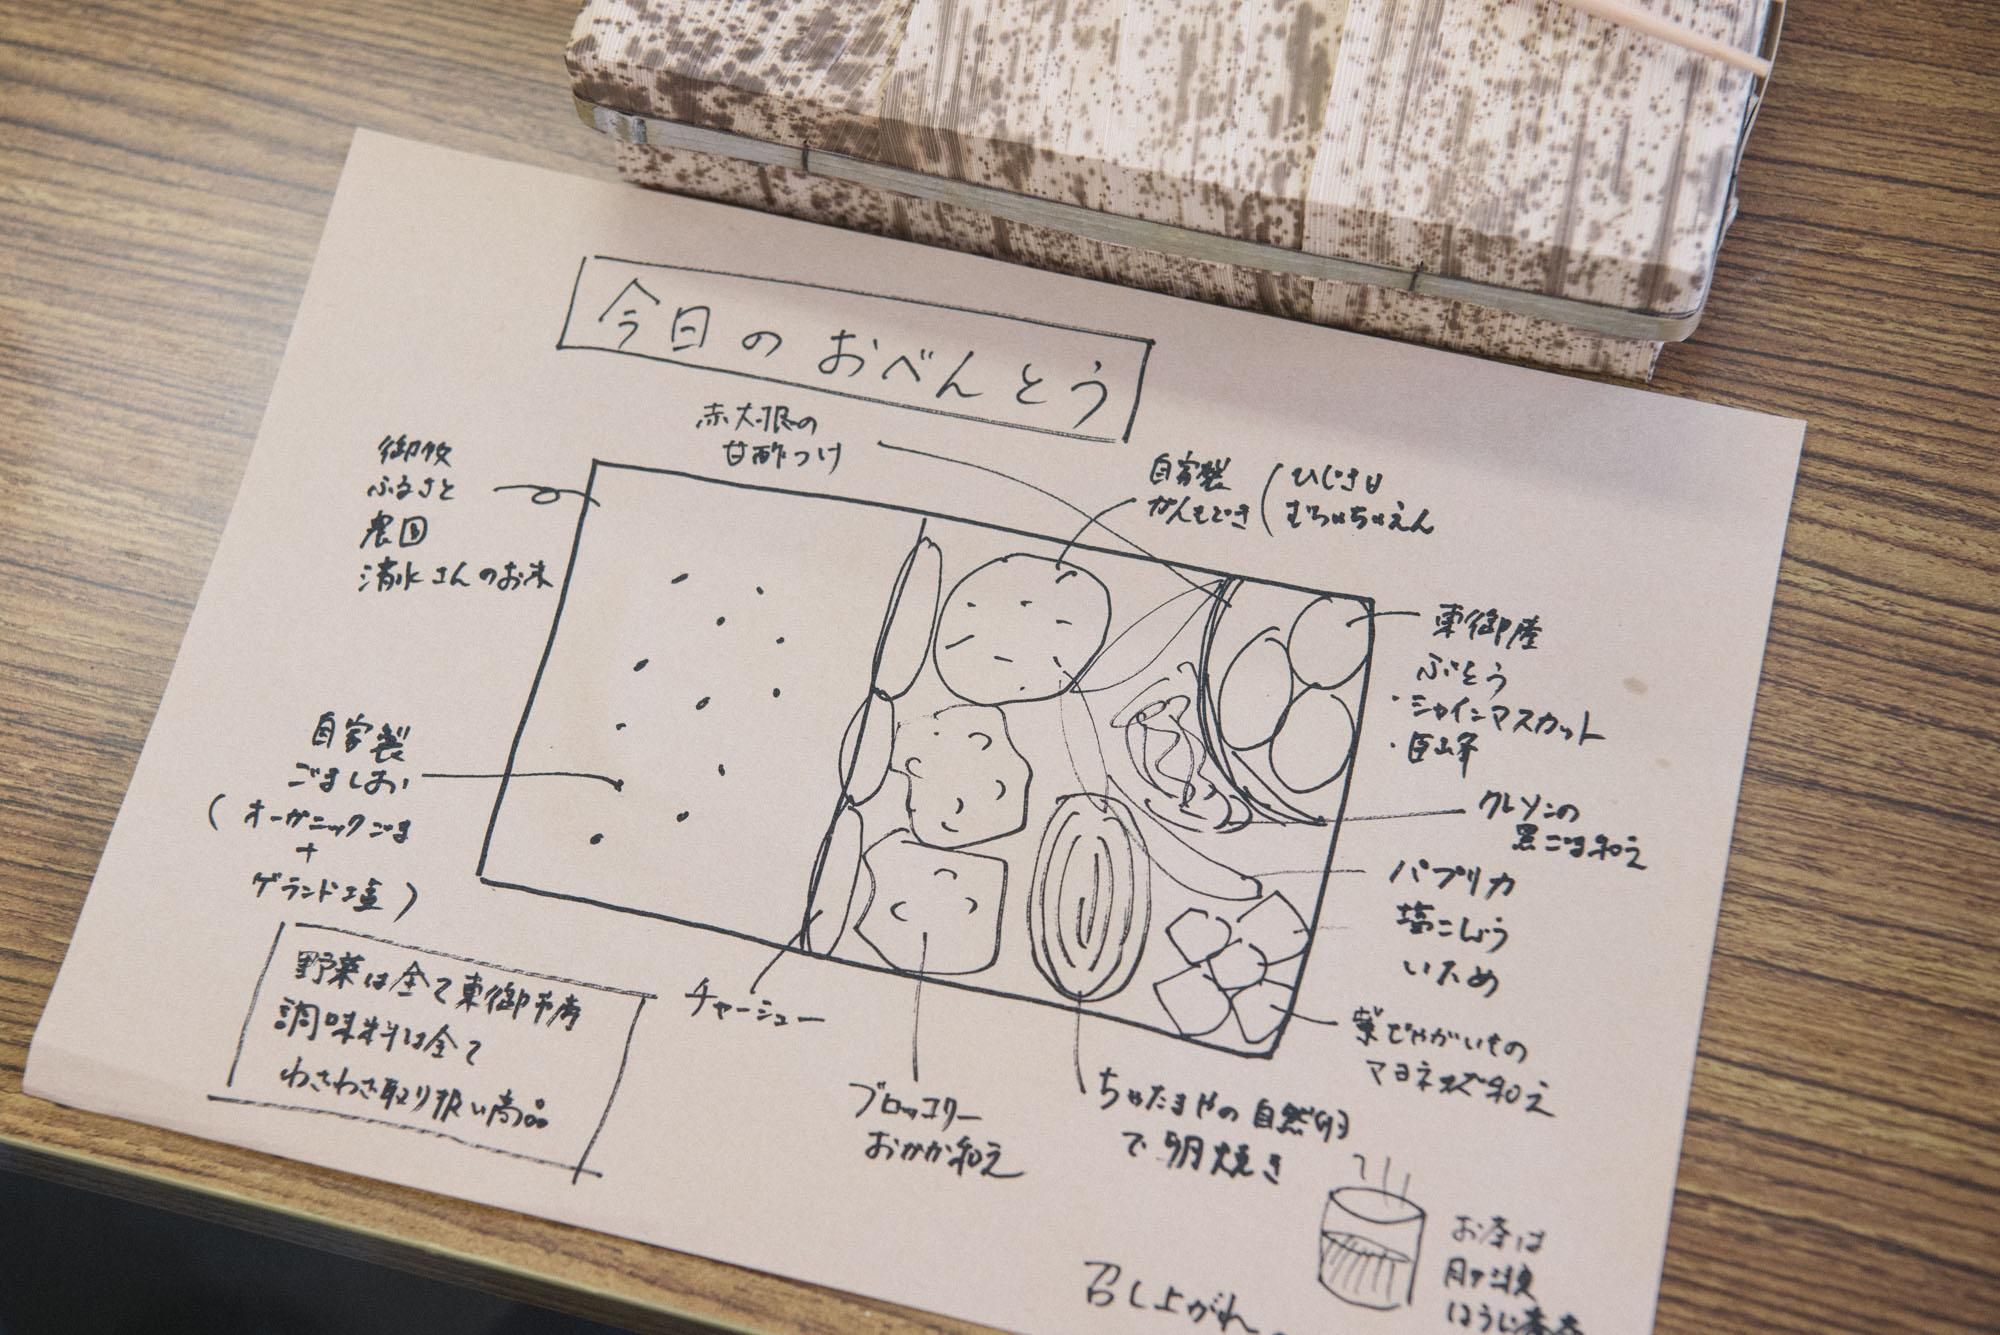 今日のおべんとう
赤大根の
甘酢つけ
御牧
ふるさと
農園
清水さんのお米
自家製
がんもどき
ひじき
自家製
ごましお
(オーガニックごま
+
ゲランド塩)
東御産
ぶどう
・シャインマスカット
・巨峰
クレソンの
黒ごま和え
パプリカ
塩こしょう
いため
紫じゃがいもの
マヨネーズ和え
チャーシュー
ブロッコリー
おかか和え
ちゃたまやの自然卵
で卵焼き
野菜は全て東御市産
調味料は全て
わざわざ取り扱い商品
お茶は
月ヶ瀬
ほうじ番茶
召し上がれ